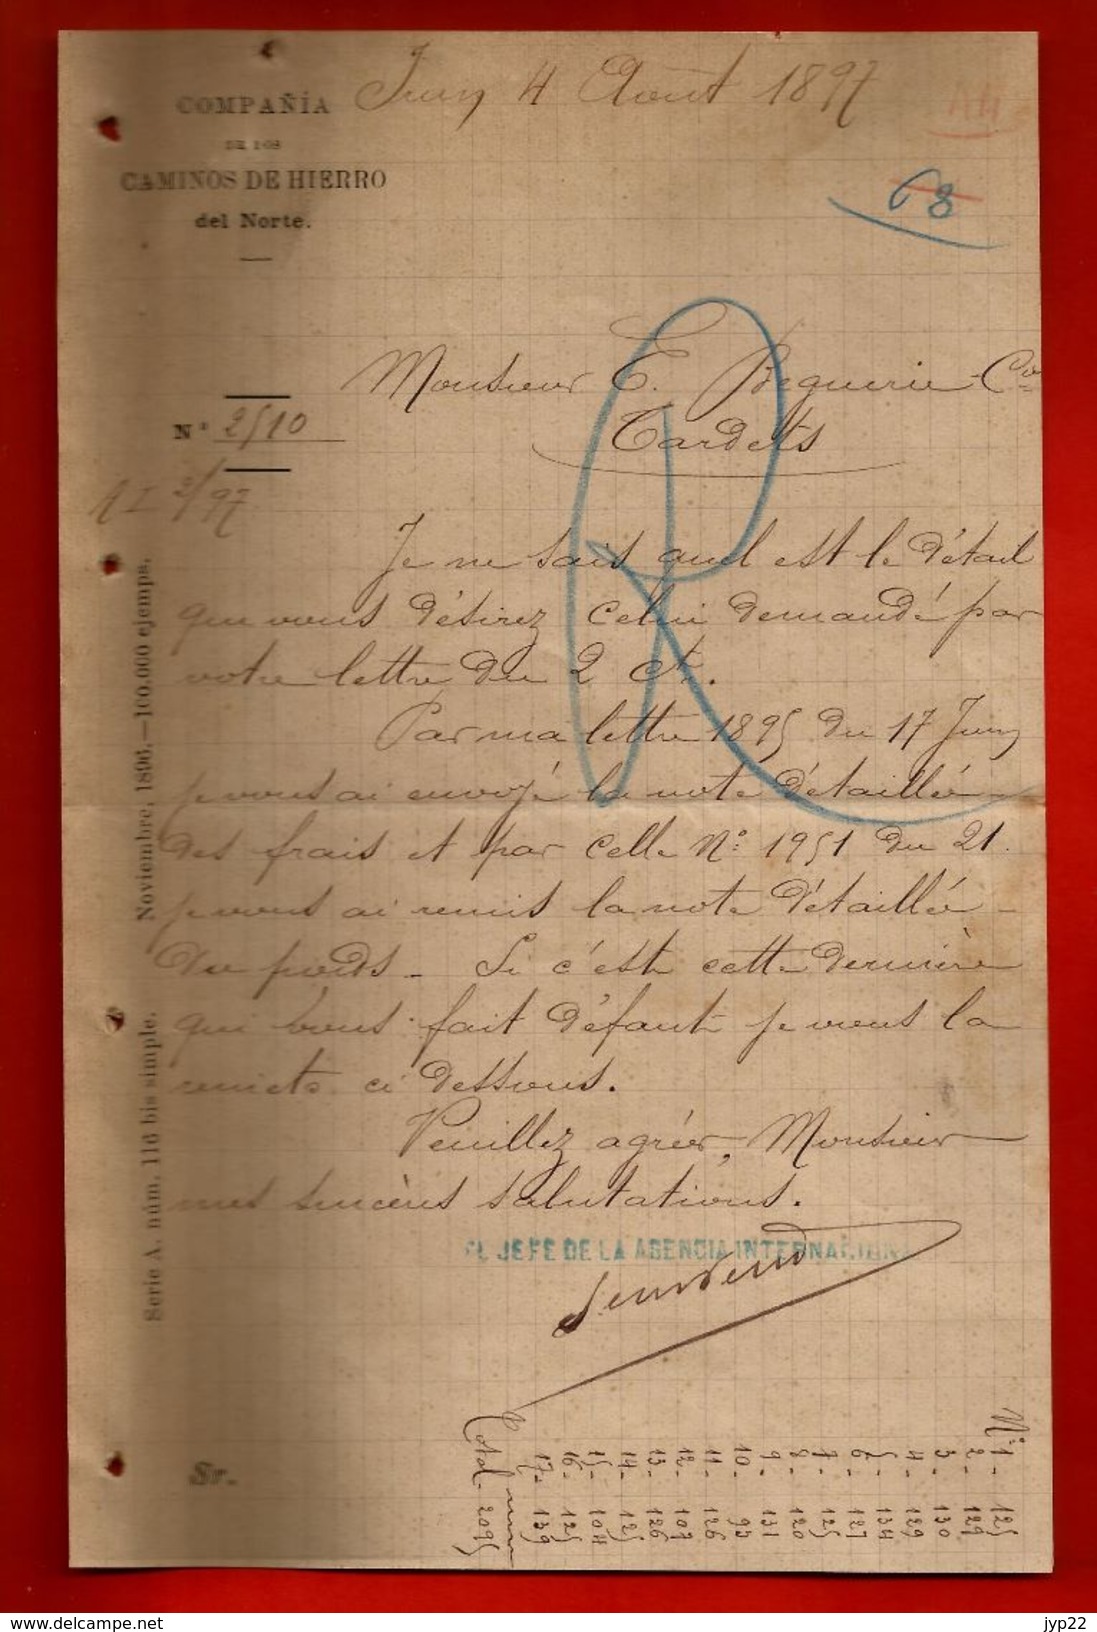 COMPAÑÍA
DE LOS
CAMINOS DE HIERRO
del Norte.
Irun 4 Août 1897
68
Monsieur E. Beguerie Cie
Tardets
N° 2510
2/97
Je ne sais quel est le détail
que vous désirez celui demandé par
votre lettre du 2 ct.
Par ma lettre 1895 du 17 Juin
je vous ai envoyé la note détaillée
des frais et par celle N° 1951 du 21
je vous ai remis la note détaillée
du poids - Si c'est cette dernière
qui vous fait défaut je vous la
remets ci dessous.
Veuillez agréer, Monsieur
mes sincères salutations.
EL JEFE DE LA AGENCIA INTERNACIONAL
Sr.
Serie A. núm. 116 bis simple. Noviembre, 1896.—100.000 ejemps.
N° 1 - 125
2 - 129
3 - 130
4 - 129
5 - 134
6 - 127
7 - 125
8 - 120
9 - 131
10 - 93
11 - 126
12 - 107
13 - 126
14 - 125
15 - 104
16 - 125
17 - 139
Total - 2095
delcampe.net
jyp22